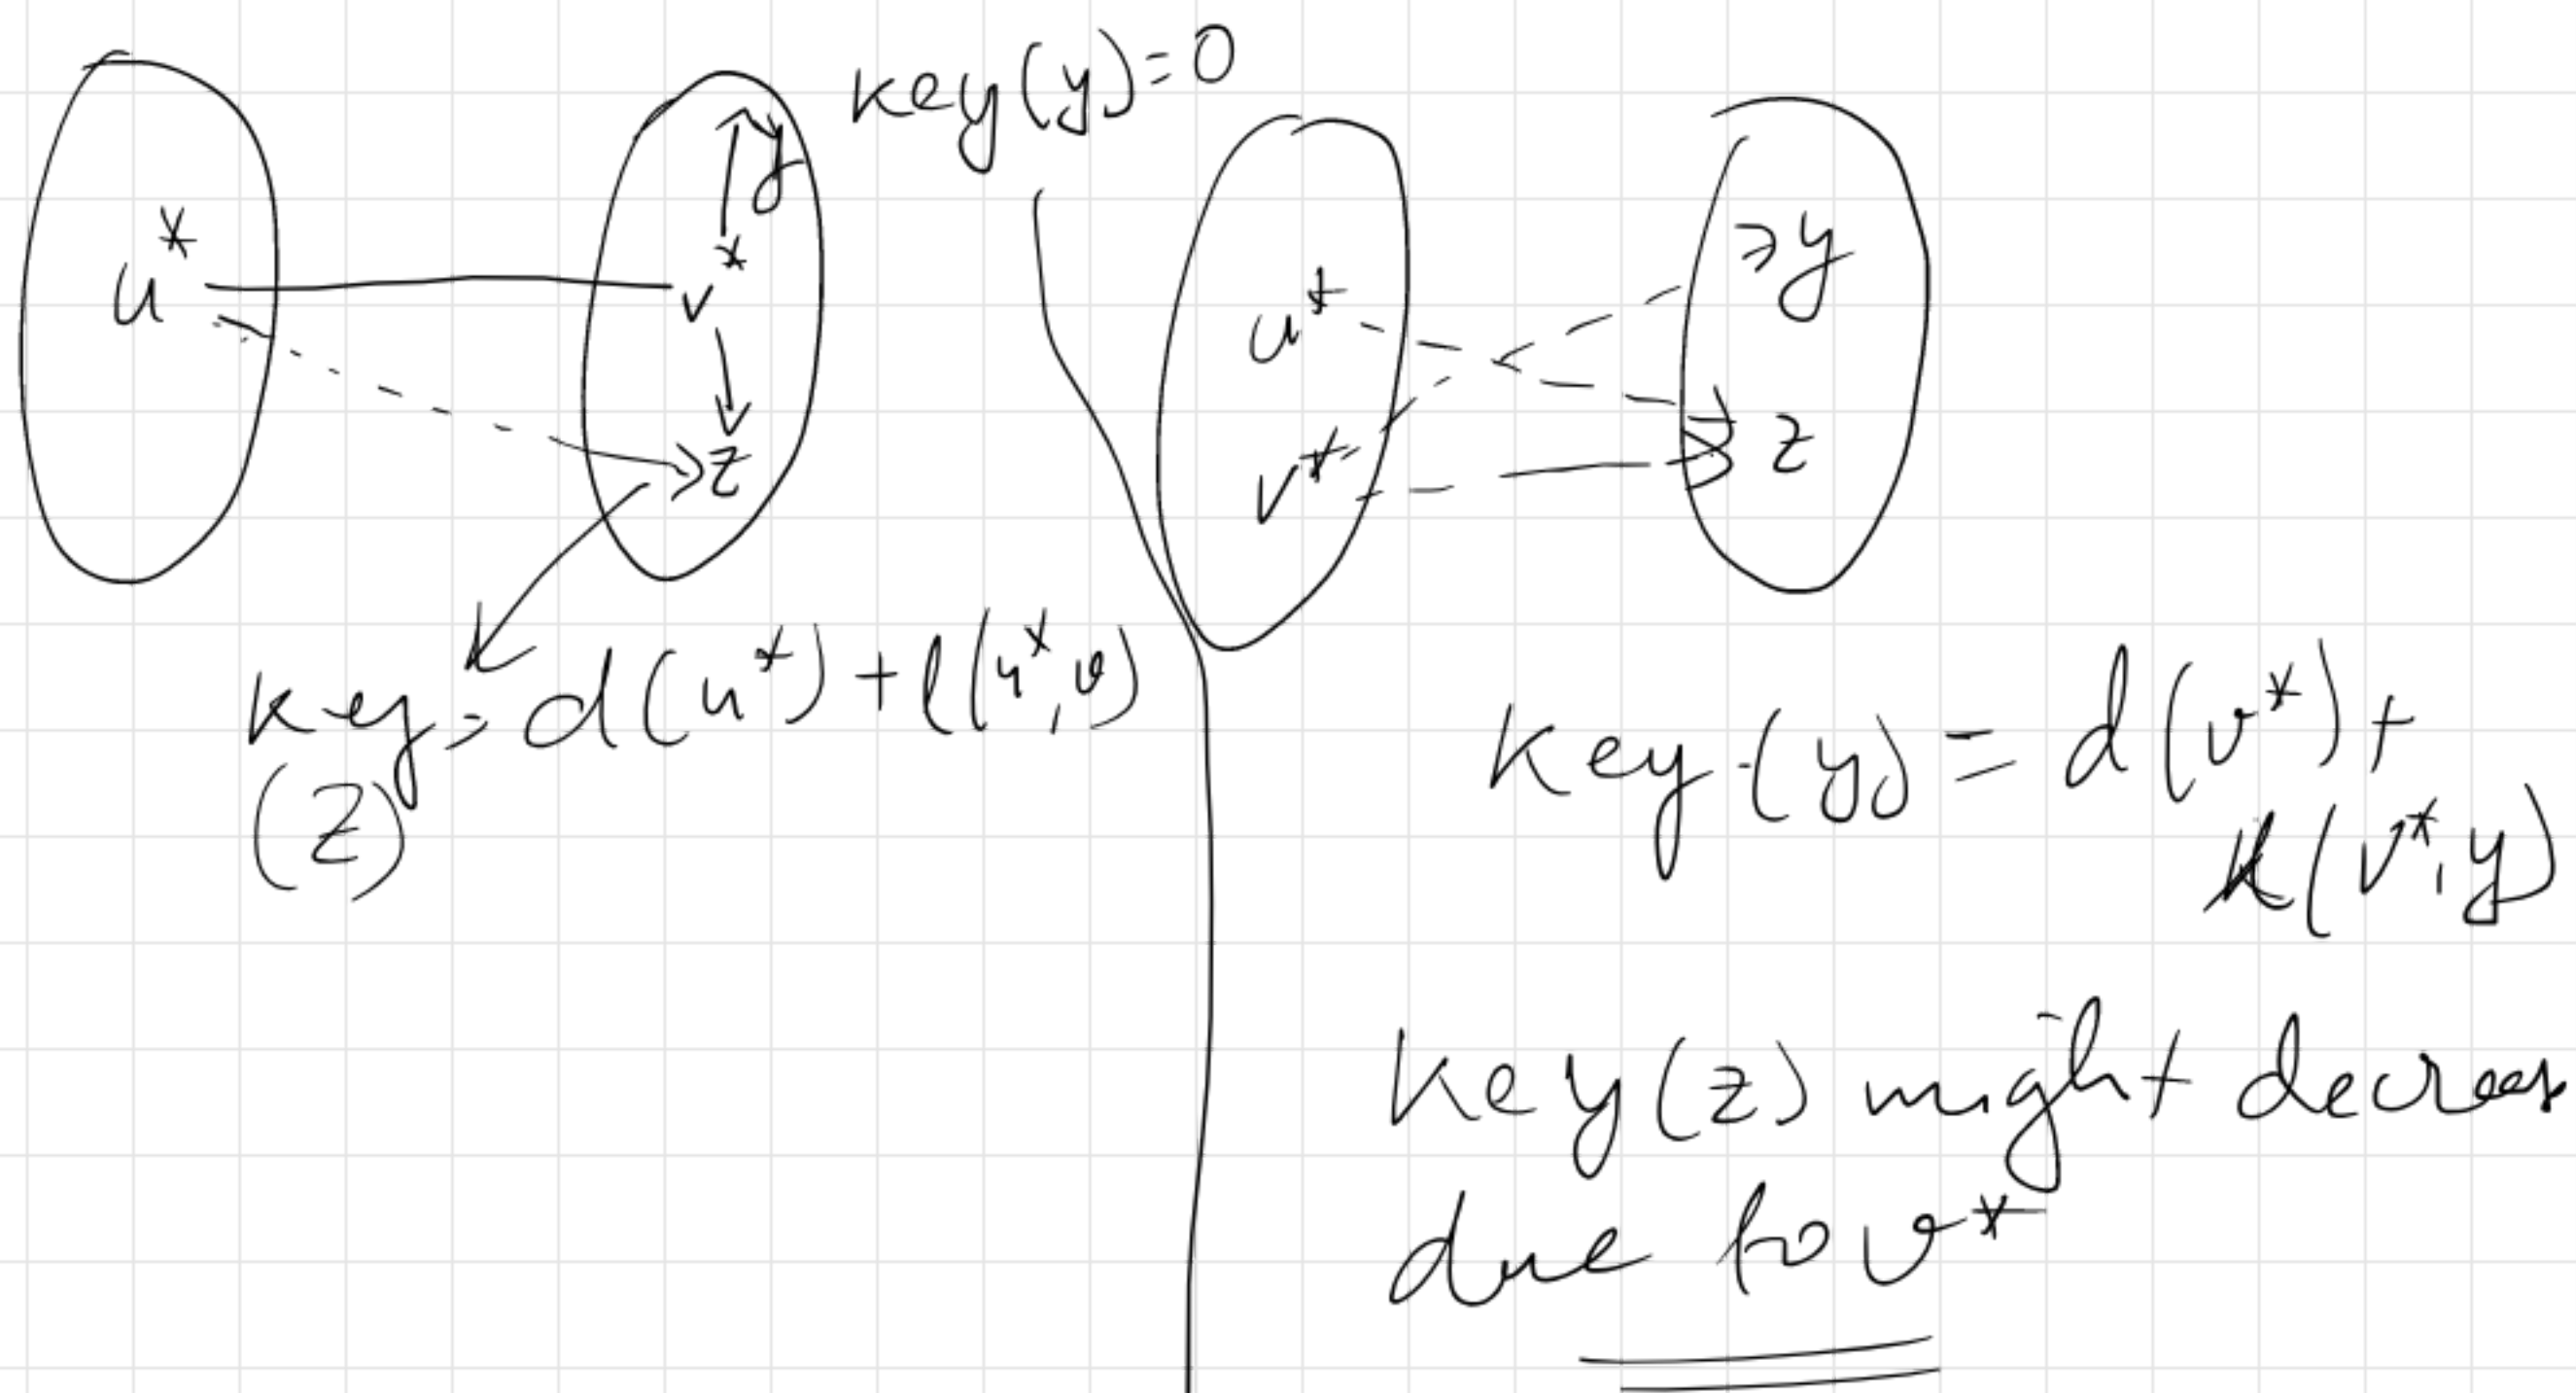 key(y)=0
u*
y
v*
z
key = d(u*) + l(u*,v)
(z)
u*
v*
y
z
key(y) = d(v*) +
l(v*,y)
key(z) might decreas
due to v*